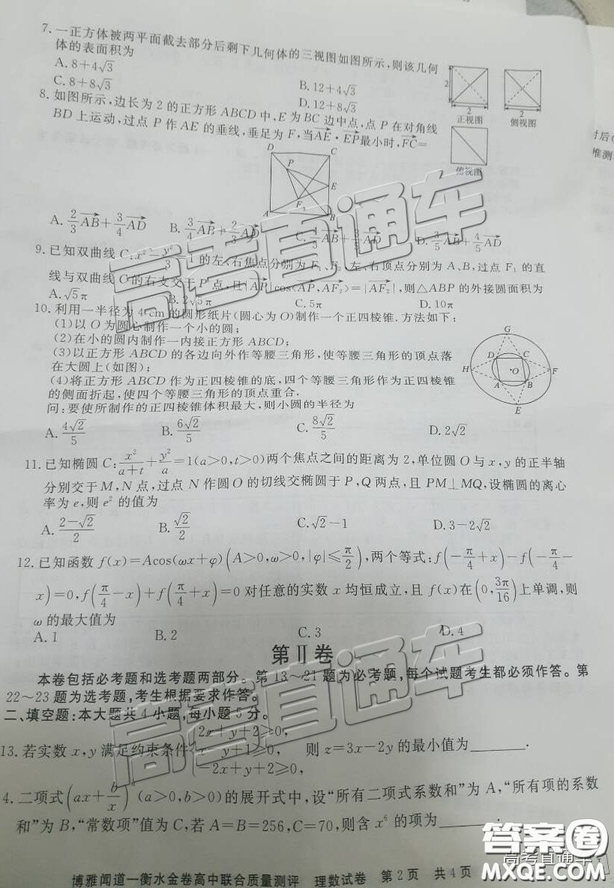 7.一正方体被两平面截去部分后剩下几何体的三视图如图所示,则该几何
体的表面积为
A.8+4√3
B.12+4√3
C.8+8√3
D.12+8√3
2
2
正视图
侧视图
俯视图
8.如图所示,边长为2的正方形ABCD中,E为BC边中点,点P在对角线
BD上运动,过点P作AE的垂线,垂足为F,当AE·EP最小时,FC=
D
C
P
E
F
A
B
A.2/3AB+3/4AD
B.3/4AB+2/3AD
9.已知双曲线
的左、右焦点分别为F₁、F₂,左、右顶点分别为A、B,过点F₁的直
线与双曲线C的右支交于P点,且
则△ABP的外接圆面积为
A.√5π
B.2√5π
C.5π
D.10π
10.利用一半径为4cm的圆形纸片(圆心为O)制作一个正四棱锥.方法如下:
(1)以O为圆心制作一个小的圆;
(2)在小的圆内制作一内接正方形ABCD;
(3)以正方形ABCD的各边向外作等腰三角形,使等腰三角形的顶点落
在大圆上(如图);
(4)将正方形ABCD作为正四棱锥的底,四个等腰三角形作为正四棱锥
的侧面折起,使四个等腰三角形的顶点重合.
问:要使所制作的正四棱锥体积最大,则小圆的半径为
G
D
C
H
·O
F
A
B
E
A.4√2/5
B.6√2/5
C.8√2/5
D.2√2
11.已知椭圆C:x²/(a+t)+y²/a=1(a>0,t>0)两个焦点之间的距离为2,单位圆O与x,y的正半轴
分别交于M,N点,过点N作圆O的切线交椭圆于P,Q两点,且PM⊥MQ,设椭圆的离心
率为e,则e²的值为
A.(2-√2)/2
B.√2/2
C.√2-1
D.3-2√2
12.已知函数f(x)=Acos(ωx+φ)(A>0,ω>0,|φ|≤π/2),两个等式:f(-π/4+x)-f(-π/4-
x)=0,f(π/4-x)+f(π/4+x)=0对任意的实数x均恒成立,且f(x)在(0,3π/16)上单调,则
ω的最大值为
A.1
B.2
C.3
D.4
第Ⅱ卷
本卷包括必考题和选考题两部分。第13~21题为必考题,每个试题考生都必须作答。第
22~23题为选考题,考生根据要求作答。
二、填空题:本大题共4小题,每小题5分。
13.若实数x,y满足约束条件
2x+y+2≥0,
x-y+1≥0,
-2x+y+2≥0,
则z=3x-2y的最小值为______.
4.二项式(ax+b/x)(a>0,b>0)的展开式中,设“所有二项式系数和”为A,“所有项的系数
和”为B,“常数项”值为C,若A=B=256,C=70,则含x⁶的项为______.
博雅闻道一衡水金卷高中联合质量测评 理数试卷 第2页 共4页
高考直通车
高考直通车
答案圈
高考直通车
MXQE.COM